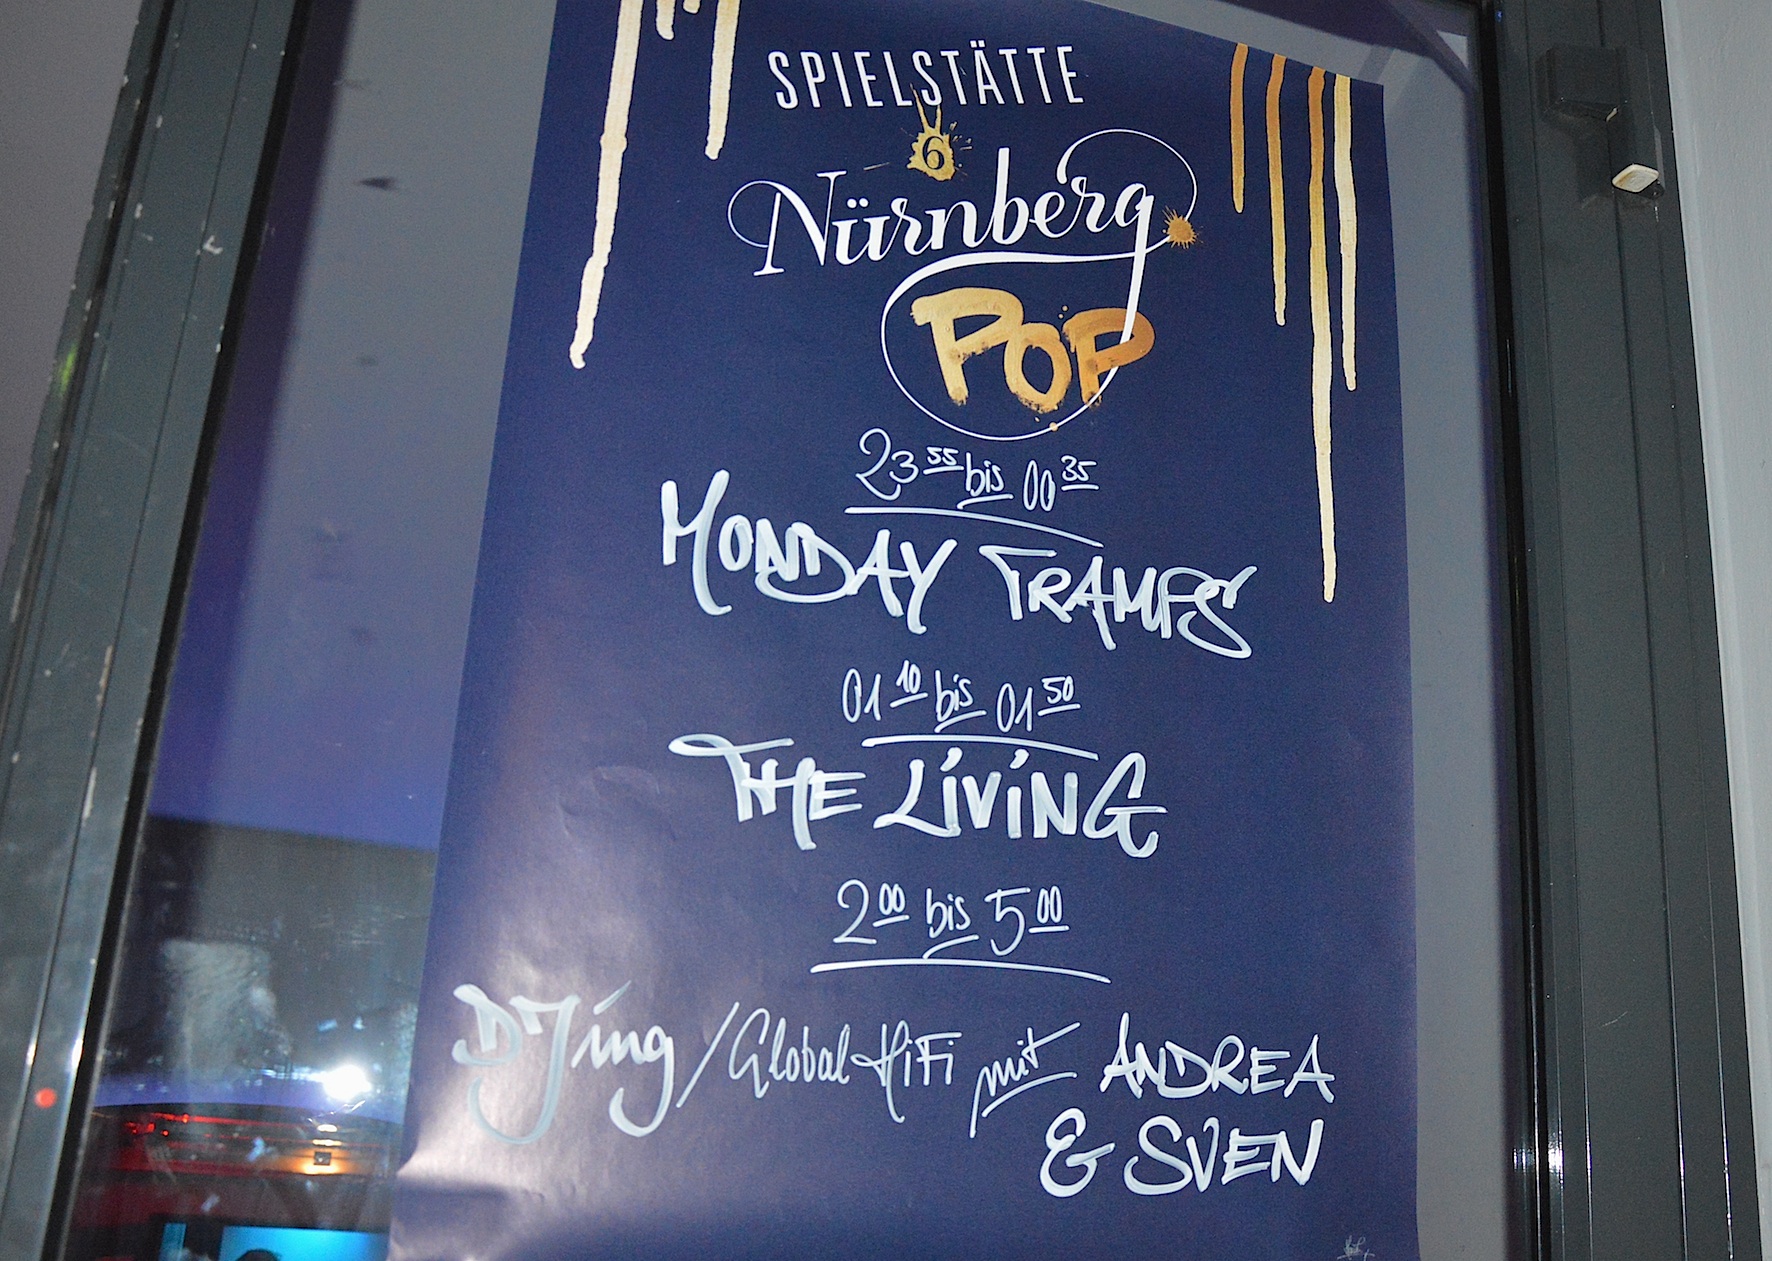 SPIELSTÄTTE
6
Nürnberg
POP
23 55 bis 00 35
MONDAY TRAMPS
01 10 bis 01 50
THE LiViNG
2 00 bis 5 00
DJing / Global HiFi mit ANDREA
& SVEN